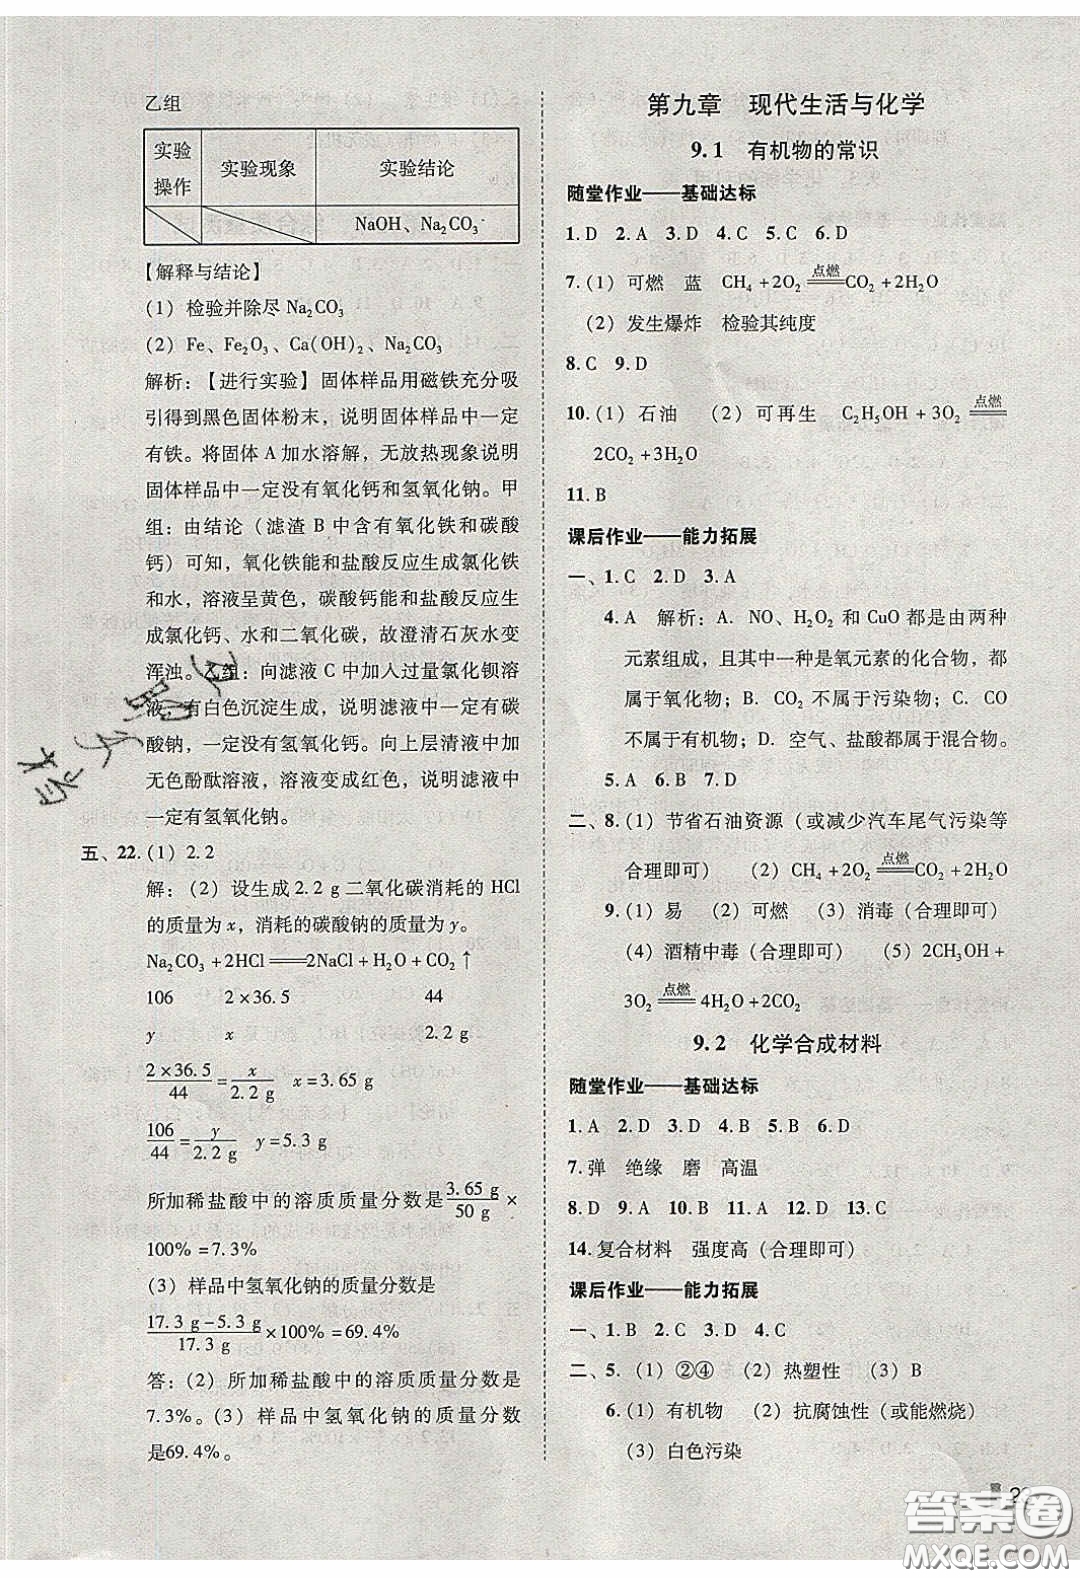 乙组
实验操作 实验现象 实验结论
NaOH、Na₂CO₃
【解释与结论】
(1) 检验并除尽 Na₂CO₃
(2) Fe、Fe₂O₃、Ca(OH)₂、Na₂CO₃
解析:【进行实验】固体样品用磁铁充分吸
引得到黑色固体粉末，说明固体样品中一定
有铁。将固体 A 加水溶解，无放热现象说明
固体样品中一定没有氧化钙和氢氧化钠。甲
组：由结论（滤渣 B 中含有氧化铁和碳酸
钙）可知，氧化铁能和盐酸反应生成氯化铁
和水，溶液呈黄色，碳酸钙能和盐酸反应生
成氯化钙、水和二氧化碳，故澄清石灰水变
浑浊。乙组：向滤液 C 中加入过量氯化钡溶
液，有白色沉淀生成，说明滤液中一定有碳
酸钠，一定没有氢氧化钙。向上层清液中加
无色酚酞溶液，溶液变成红色，说明滤液中
一定有氢氧化钠。
五、22.(1) 2.2
解：(2) 设生成 2.2 g 二氧化碳消耗的 HCl
的质量为 x，消耗的碳酸钠的质量为 y。
Na₂CO₃+2HCl══2NaCl+H₂O+CO₂↑
106 2×36.5 44
y x 2.2 g
2×36.5/44=x/2.2 g x=3.65 g
106/44=y/2.2 g y=5.3 g
所加稀盐酸中的溶质质量分数是3.65 g/50 g×
100%=7.3%
(3) 样品中氢氧化钠的质量分数是
17.3 g-5.3 g/17.3 g×100%=69.4%
答：(2) 所加稀盐酸中的溶质质量分数是
7.3%。(3) 样品中氢氧化钠的质量分数
是69.4%。
第九章 现代生活与化学
9.1 有机物的常识
随堂作业——基础达标
1.D 2.A 3.D 4.D 5.C 6.D
7.(1) 可燃 蓝 CH₄+2O₂ 点燃══ CO₂+2H₂O
(2) 发生爆炸 检验其纯度
8.C 9.D
10.(1) 石油 (2) 可再生 C₂H₅OH+3O₂ 点燃══
2CO₂+3H₂O
11.B
课后作业——能力拓展
一、1.C 2.D 3.A
4.A 解析：A. NO、H₂O₂ 和 CuO 都是由两种
元素组成，且其中一种是氧元素的化合物，都
属于氧化物；B. CO₂ 不属于污染物；C. CO
不属于有机物；D. 空气、盐酸都属于混合物。
5.A 6.B 7.D
二、8.(1) 节省石油资源（或减少汽车尾气污染等
合理即可） (2) CH₄+2O₂ 点燃══ CO₂+2H₂O
9.(1) 易 (2) 可燃 (3) 消毒（合理即可）
(4) 酒精中毒（合理即可） (5) 2CH₃OH+
3O₂ 点燃══ 4H₂O+2CO₂
9.2 化学合成材料
随堂作业——基础达标
1.A 2.D 3.D 4.B 5.B 6.D
7.弹 绝缘 磨 高温
8.D 9.A 10.B 11.A 12.D 13.C
14.复合材料 强度高（合理即可）
课后作业——能力拓展
一、1.B 2.C 3.D 4.C
二、5.(1) ②④ (2) 热塑性 (3) B
6.(1) 有机物 (2) 抗腐蚀性（或能燃烧）
(3) 白色污染
答案圈
MXQE.COM